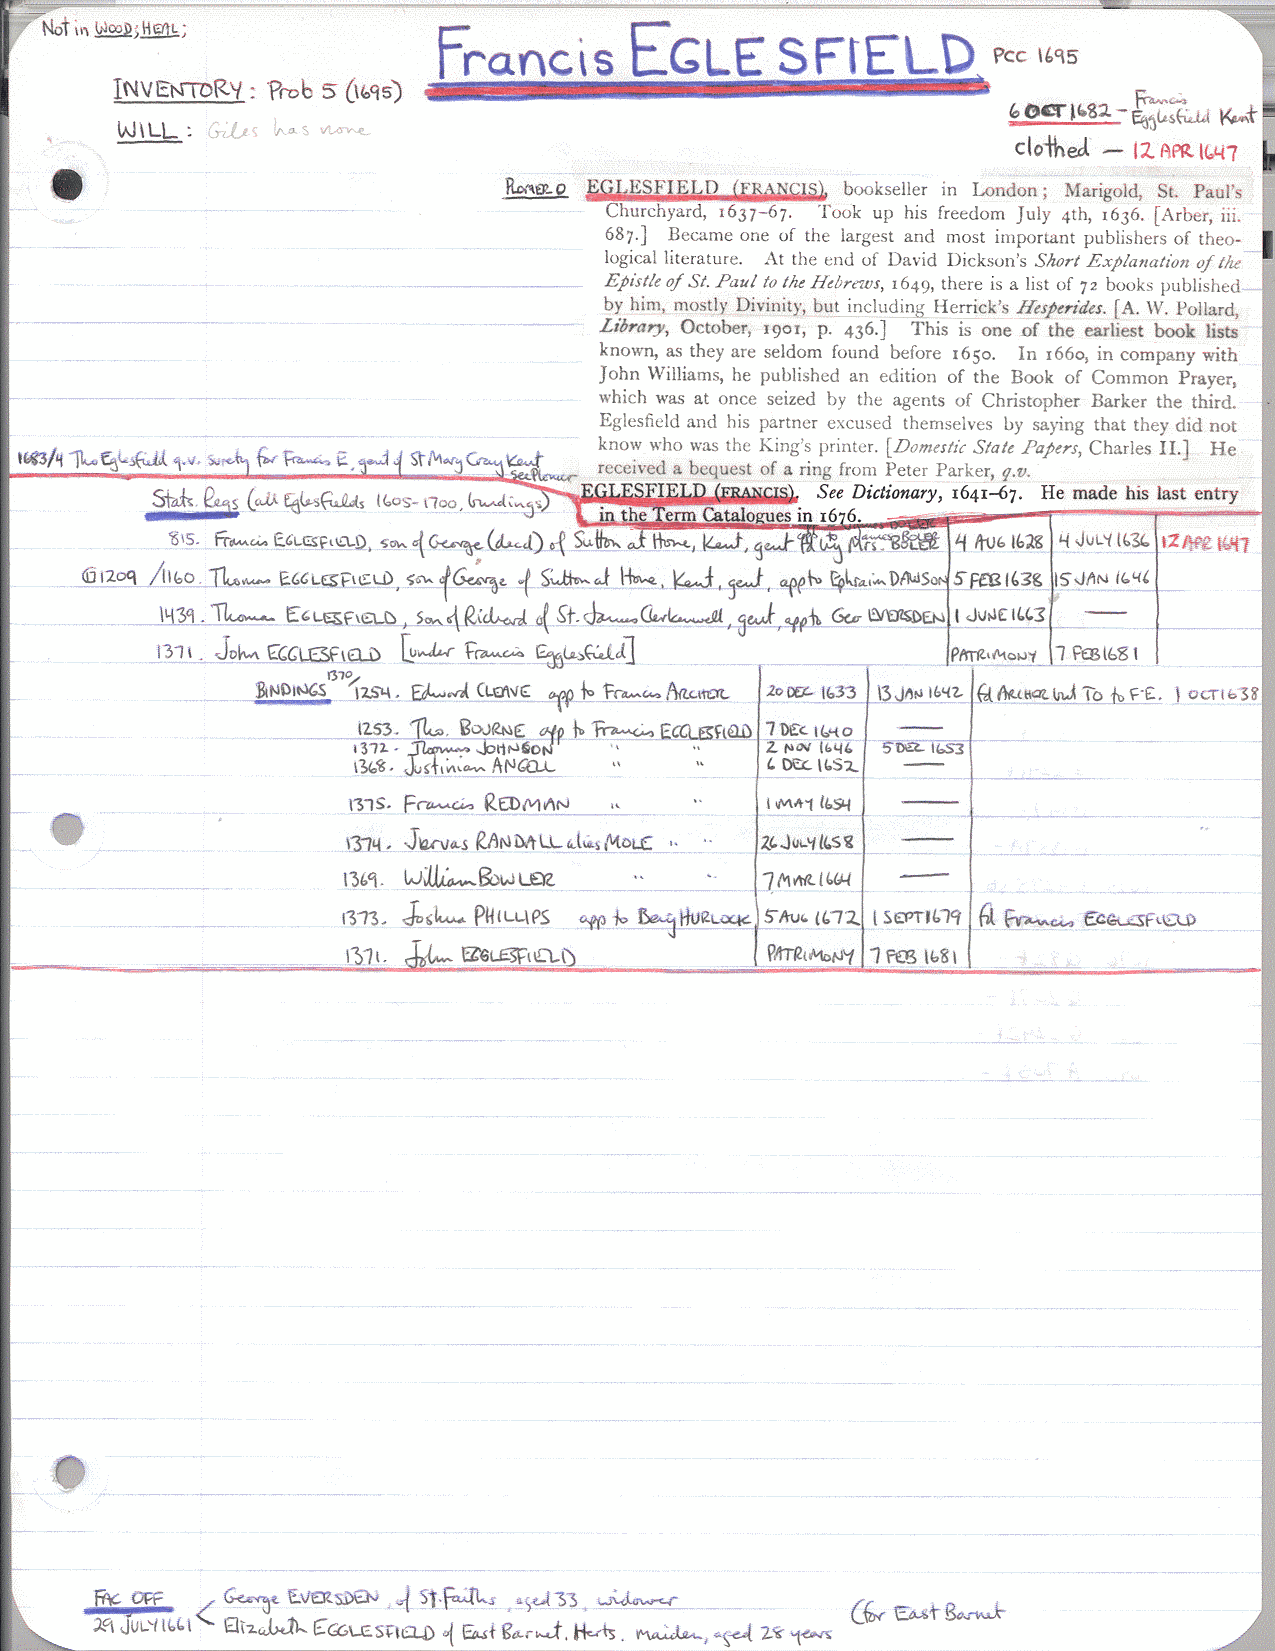 Not in WOOD; HEAL;
Francis EGLESFIELD PCC 1695
INVENTORY: Prob 5 (1695)
6 OCT 1682 - Francis Egglesfield Kent
WILL: Giles has none
clothed — 12 APR 1647
PLOMER EGLESFIELD (FRANCIS), bookseller in London; Marigold, St. Paul's
Churchyard, 1637-67. Took up his freedom July 4th, 1636. [Arber, iii.
687.] Became one of the largest and most important publishers of theo-
logical literature. At the end of David Dickson's Short Explanation of the
Epistle of St. Paul to the Hebrews, 1649, there is a list of 72 books published
by him, mostly Divinity, but including Herrick's Hesperides. [A. W. Pollard,
Library, October, 1901, p. 436.] This is one of the earliest book lists
known, as they are seldom found before 1650. In 1660, in company with
John Williams, he published an edition of the Book of Common Prayer,
which was at once seized by the agents of Christopher Barker the third.
Eglesfield and his partner excused themselves by saying that they did not
know who was the King's printer. [Domestic State Papers, Charles II.] He
received a bequest of a ring from Peter Parker, q.v.
1683/4 Tho Eglesfield q.v. surety for Francis E, gent of St Mary Cray Kent
see Plomer
EGLESFIELD (FRANCIS). See Dictionary, 1641-67. He made his last entry
in the Term Catalogues in 1676.
Stats. Regs (all Eglesfields 1605-1700, bindings)
815. Francis EGLESFIELD, son of George (decd) of Sutton at Hone, Kent, gent fd by Mrs. BOLER 4 AUG 1628 4 JULY 1636 12 APR 1647
1209/1160. Thomas EGGLESFIELD, son of George of Sutton at Hone, Kent, gent, app to Ephraim DAWSON 5 FEB 1638 15 JAN 1646
1439. Thomas EGLESFIELD, son of Richard of St. James Clerkenwell, gent, app to Geo EVERSDEN 1 JUNE 1663 —
1371. John EGGLESFIELD [under Francis Egglesfield] PATRIMONY 7 FEB 1681
BINDINGS 1370/1254. Edward CLEAVE app to Francis ARCHER 20 DEC 1633 13 JAN 1642 fd ARCHER but TO to F.E. 1 OCT 1638
1253. Tho. BOURNE app to Francis EGGLESFIELD 7 DEC 1640 —
1372. Thomas JOHNSON " " 2 NOV 1646 5 DEC 1653
1368. Justinian ANGELL " " 6 DEC 1652 —
1375. Francis REDMAN " " 1 MAY 1654 —
1374. Jervas RANDALL alias MOLE " " 26 JULY 1658 —
1369. William BOWLER " " 7 MAR 1664 —
1373. Joshua PHILLIPS app to Benj HURLOCK 5 AUG 1672 1 SEPT 1679 fd Francis EGGLESFIELD
1371. John EGGLESFIELD PATRIMONY 7 FEB 1681
FAC OFF George EVERSDEN, of St. Faiths, aged 33, widower
29 JULY 1661 Elizabeth EGGLESFIELD of East Barnet, Herts. maiden, aged 28 years (for East Barnet